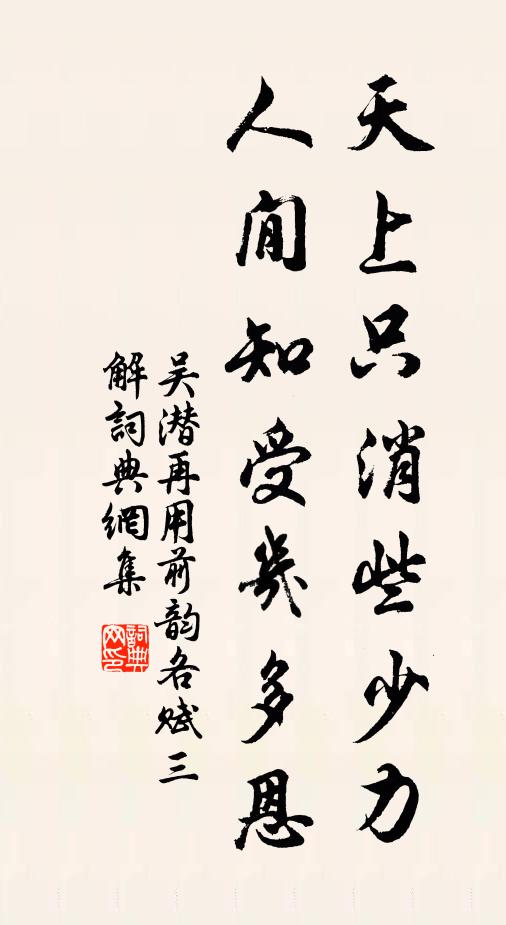 天上只消些少力
人間知受幾多恩
吴潛再用前韵各賦三
解詞典網集
詞典网印